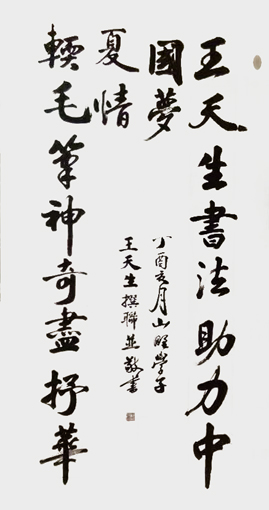 王天生書法助力中
國夢
輭毛筆神奇盡抒華
夏情
丁酉亥月山學子
王天生撰聯並敬書